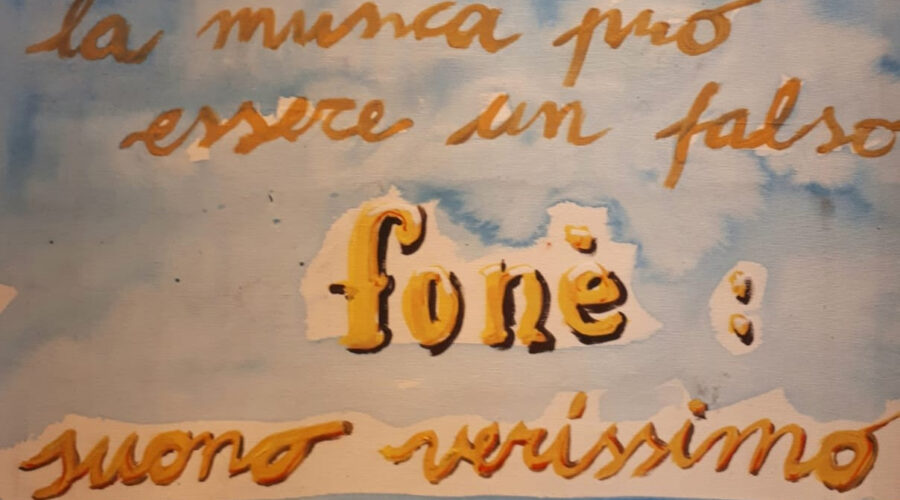 la musica può
essere un falso
fonè:
suono verissimo